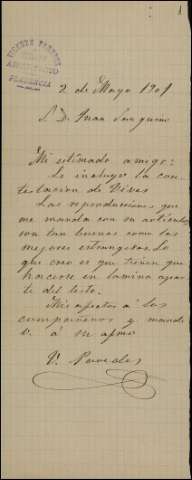 1
VICENTE PAREDES
ARQUITECTO
PLASENCIA
2 de Mayo 1901
S. D. Juan Sanguino
Mi estimado amigo:
Le incluyo la con
testacion de Vivas
Las reproducciones que
me manda con su articulo
son tan buenas como las
mejores estrangeras. Lo
que creo es que tienen que
hacerse en lamina apar
te del testo.
Mis afectos á los
compañeros y mande
V. á su afmo
V. Paredes